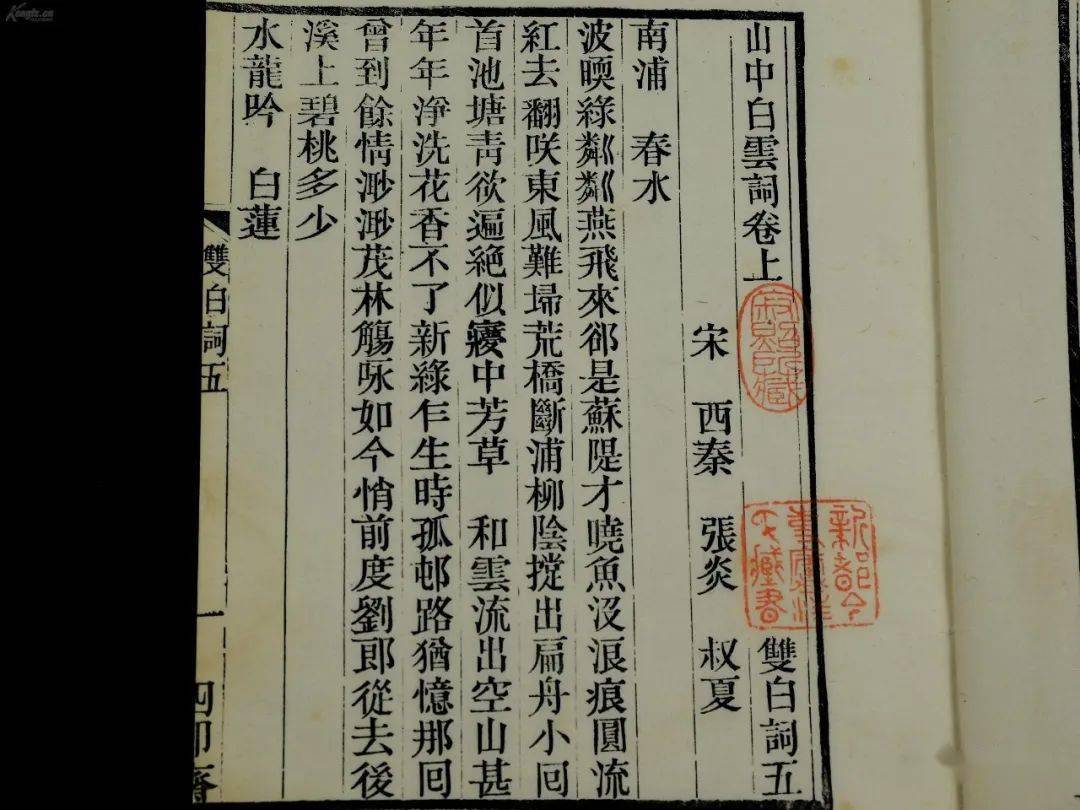 山中白雲詞卷上 雙白詞五
宋 西秦 張炎 叔夏
南浦 春水
波㬉綠粼粼燕飛來郤是蘇隄才曉魚沒浪痕圓流
紅去翻咲東風難埽荒橋斷浦柳陰撐出扁舟小囘
首池塘靑欲遍絕似夢中芳草 和雲流出空山甚
年年淨洗花香不了新綠乍生時孤邨路猶憶那囘
曾到餘情渺渺茂林觴咏如今悄前度劉郎從去後
溪上碧桃多少
水龍吟 白蓮
雙白詞五 一 四印齋
Kongfz.cn